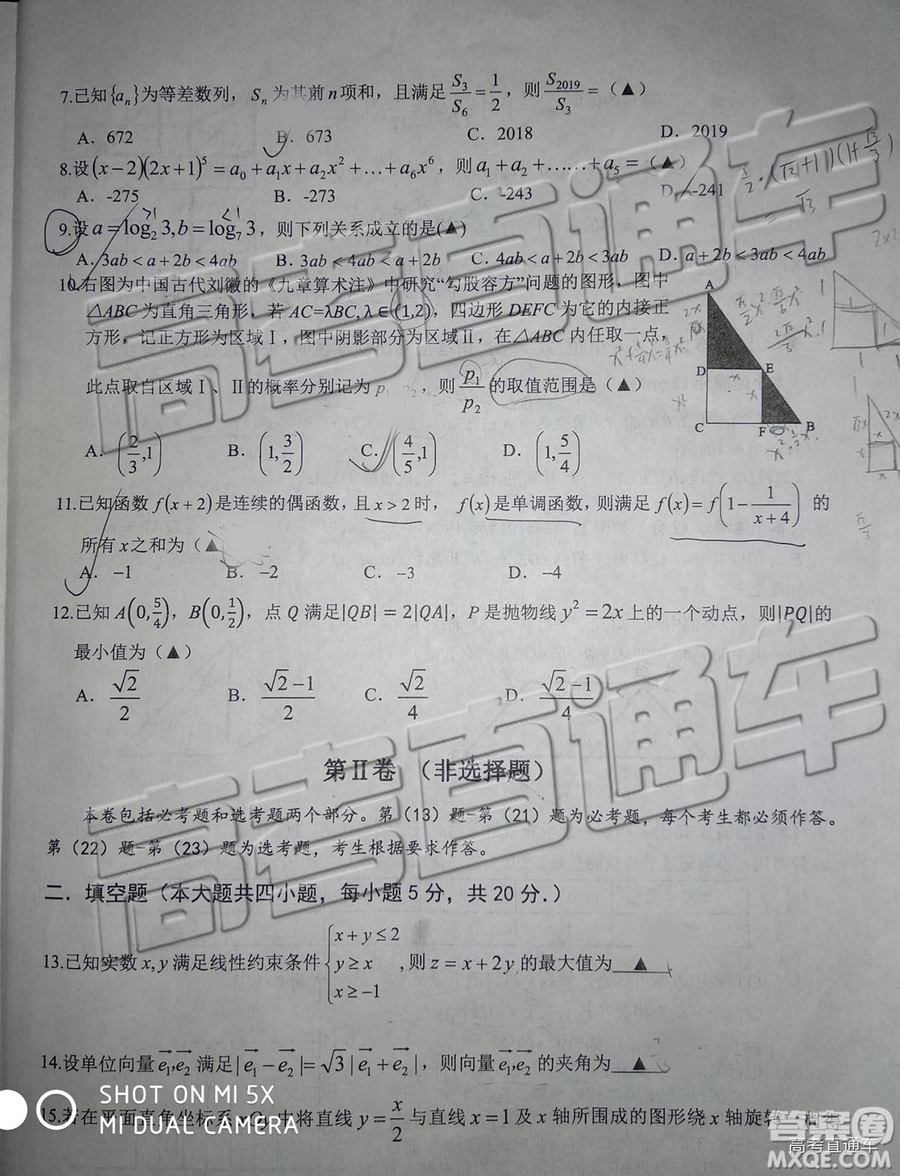 7.已知{aₙ}为等差数列，Sₙ为其前n项和，且满足S₃/S₆=1/2，则S₂₀₁₉/S₃=（▲）
A．672 B．673 C．2018 D．2019
8.设(x−2)(2x+1)⁵=a₀+a₁x+a₂x²+…+a₆x⁶，则a₁+a₂+……+a₅=（▲）
A．-275 B．-273 C．-243 D．-241
9.设a=log₂3,b=log₇3，则下列关系成立的是(▲)
A．3ab<a+2b<4ab B．3ab<4ab<a+2b C．4ab<a+2b<3ab D．a+2b<3ab<4ab
10.右图为中国古代刘徽的《九章算术注》中研究“勾股容方”问题的图形，图中
△ABC为直角三角形，若AC=λBC,λ∈(1,2)，四边形DEFC为它的内接正
方形，记正方形为区域Ⅰ，图中阴影部分为区域Ⅱ，在△ABC内任取一点，
此点取自区域Ⅰ、Ⅱ的概率分别记为p₁ ₂，则p₁/p₂的取值范围是（▲）
A．(2/3,1) B．(1,3/2) C．(4/5,1) D．(1,5/4)
A
D E
C F B
11.已知函数f(x+2)是连续的偶函数,且x>2时，f(x)是单调函数,则满足f(x)=f(1−1/(x+4))的
所有x之和为（▲
A．−1 B．−2 C．−3 D．−4
12.已知A(0,5/4)，B(0,1/2)，点Q满足|QB|=2|QA|，P是抛物线y²=2x上的一个动点，则|PQ|的
最小值为（▲）
A．√2/2 B．(√2−1)/2 C．√2/4 D．(√2−1)/4
第Ⅱ卷 （非选择题）
本卷包括必考题和选考题两个部分。第（13）题-第（21）题为必考题，每个考生都必须作答。
第（22）题-第（23）题为选考题，考生根据要求作答。
二．填空题（本大题共四小题，每小题5分，共20分．）
13.已知实数x,y满足线性约束条件{x+y≤2 y≥x x≥−1,则z=x+2y的最大值为 ▲
14.设单位向量e₁,e₂满足|e₁−e₂|=√3|e₁+e₂|，则向量e₁,e₂的夹角为 ▲
15.若在平面直角坐标系xOy中将直线y=x/2与直线x=1及x轴所围成的图形绕x轴旋转一周得
SHOT ON MI 5X
MI DUAL CAMERA
高考直通车
高考直通车
答案卷
高考直通车
MXQE.COM